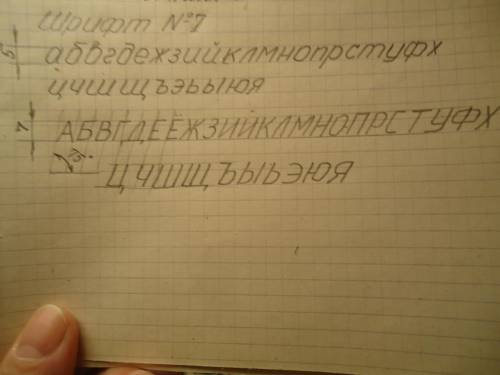 Шрифт №7
5 абвгдежзийклмнопрстуфх
цчшщъэьыюя
7 АБВГДЕЁЖЗИЙКЛМНОПРСТУФХ
75° ЦЧШЩЪЫЬЭЮЯ